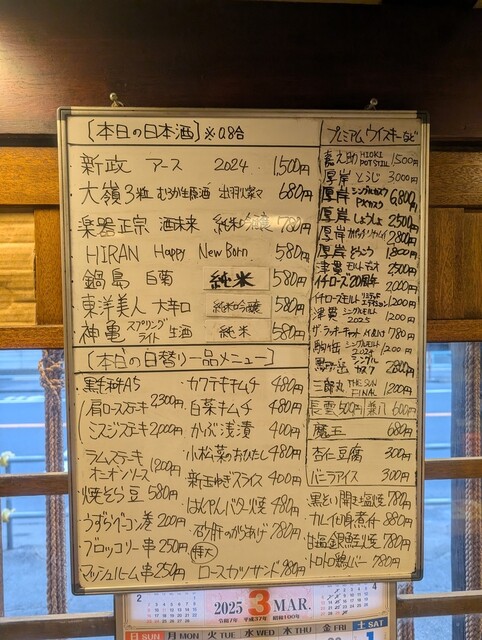 【本日の日本酒】※0.8合
新政 アース 2024 1,500円
大嶺3粒 むろか生原酒 出羽燦々 680円
楽器正宗 酒未来 純米吟醸 780円
HIRAN Happy New Born 580円
鍋島 白菊 純米 580円
東洋美人 大辛口 純米吟醸 580円
神亀 スプリングライト 生酒 純米 580円
【本日の日替り一品メニュー】
黒毛和牛A5
肩ロースステーキ 2300円
ミスジステーキ 2000円
ラムステーキ
オニオンソース 1200円
焼そら豆 580円
うずらベーコン巻 200円
ブロッコリー串 250円
マッシュルーム串 250円
カクテキキムチ 480円
白菜キムチ 480円
かぶ浅漬 400円
小松菜のおひたし 480円
新玉ねぎスライス 400円
はんぺんバター焼 480円
砂肝のからあげ 780円
特大
ロースカツサンド 980円
プレミアムウイスキーなど
嘉之助 HIOKI POTSTILL 1,500円
厚岸 とうじ 3000円
厚岸 シングルカスク 6,800円
厚岸 しょうしょ 2500円
厚岸 2800円
厚岸 1,800円
津貫 2500円
イチローズ 20周年 2,000円
イチローズモルト 1200円
津貫 シングルモルト 2025 1,200円
ザ・ラッキーキャット 780円
駒ヶ岳 シングルモルト 2024 1200円
駒ヶ岳 シングルカスク 2800円
三郎丸 THE SUN FINAL 1200円
長雲 500円 兼八 600円
魔王 680円
杏仁豆腐 300円
バニラアイス 300円
黒そい開き塩焼 780円
カレイ煮付 880円
甘塩銀鮭焼 780円
トロトロ鶏レバー 780円
2025 3 MAR.
令和7年 平成37年 昭和100年
日 SUN 月 MON 火 TUE 水 WED 木 THU 金 FRI 土 SAT